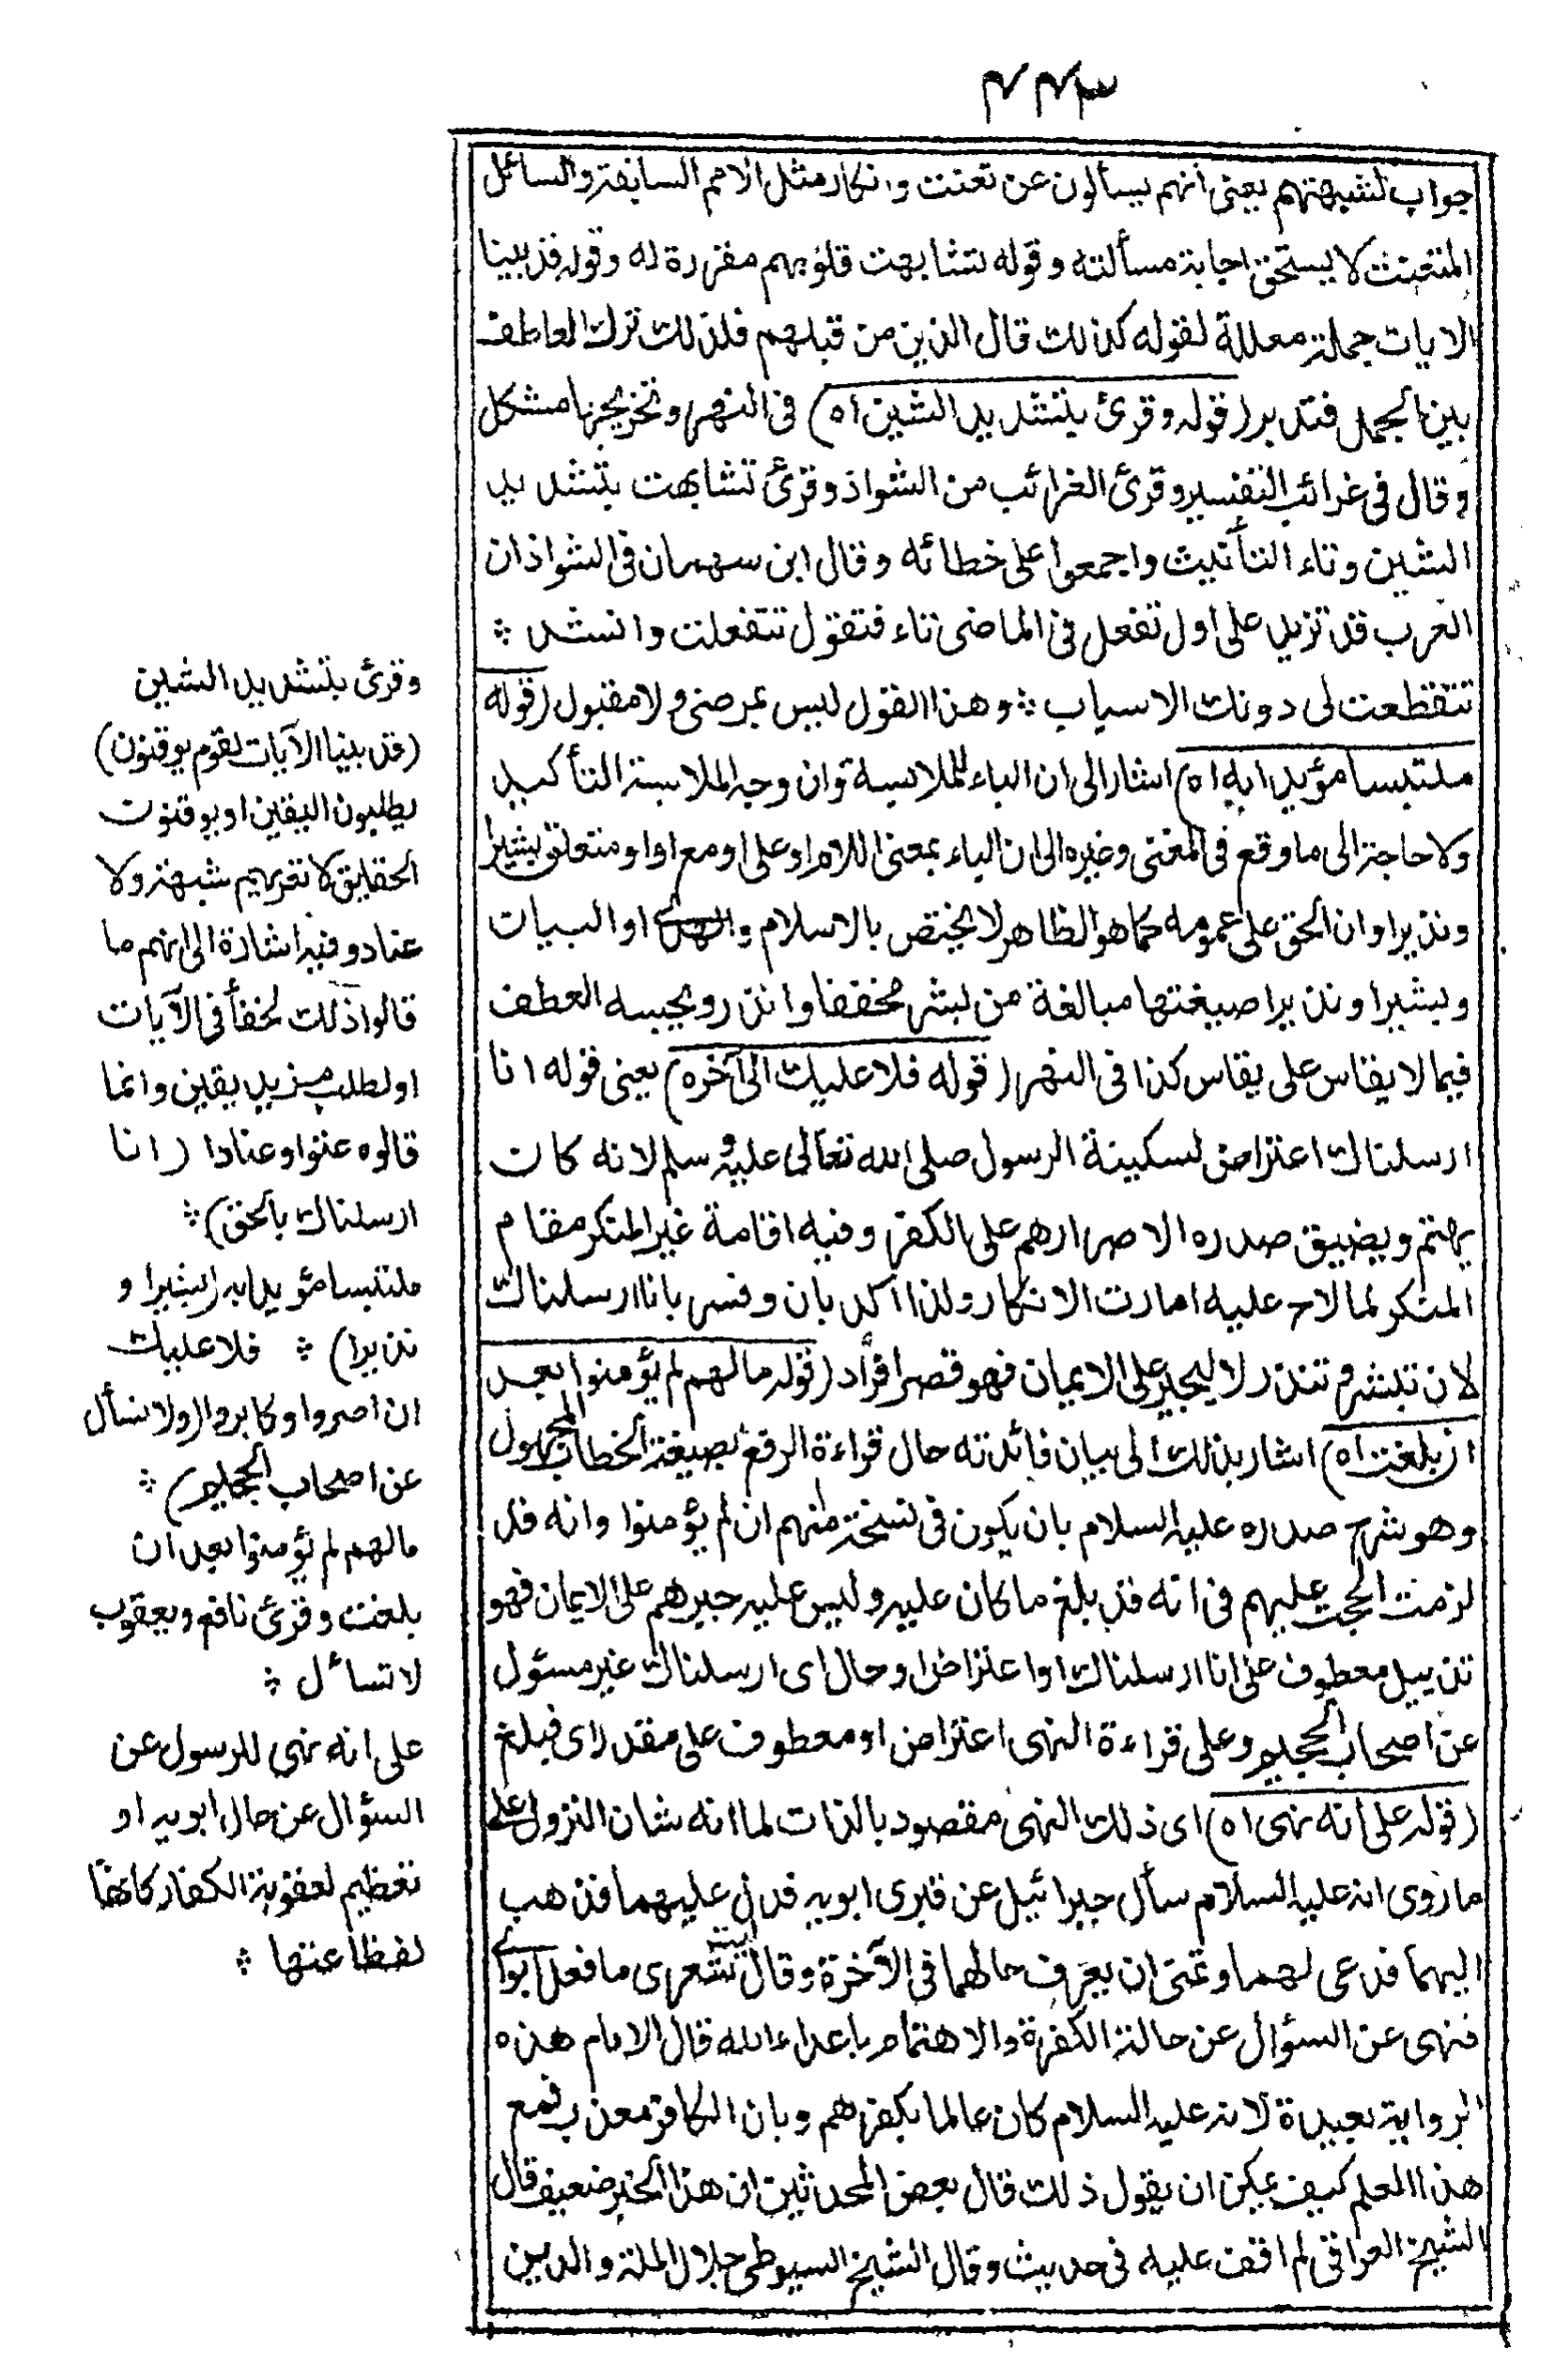 ٤٤٣
جواب لشبهتهم يعنى انهم يسألون عن تعنت وانكار مثل الامم السابقة والسائل
المتعنت لا يستحق اجابة مسألته وقوله تشابهت قلوبهم مقررة له وقوله قد بينا
الايات جملة معللة لقوله كذلك قال الذين من قبلهم فلذلك ترك العاطف
بين الجمل فتدبر (قوله وقرئ بتشديد الشين اه) فى النهر وتخريجها مشكل
وقال فى غرائب التفسير وقرئ الغرائب من الشواذ وقرئ تشابهت بتشديد
الشين وتاء التأنيث واجمعوا على خطائه وقال ابن سهمان فى الشواذ ان
العرب قد تزيد على اول تفعل فى الماضى تاء فتقول تتفعلت وانشد ؞
تتقطعت لى دونك الاسباب ؞ وهذا القول ليس بمرضى ولا مقبول (قوله
ملتبسا مؤيدا به اه) اشار الى ان الباء للملابسة وان وجه الملابسة التأكيد
ولا حاجة الى ما وقع فى المغنى وغيره الى ان الباء بمعنى اللام او على او مع او او متعلق بشيرا
ونذيرا وان الحق على عمومه كما هو الظاهر لا يختص بالاسلام والهدى او البيات
وبشيرا ونذيرا صيغتها مبالغة من بشر مخففا وانذر ويجيسه العطف
فيما لا يقاس على يقاس كذا فى النهر (قوله فلا عليك الى آخره) يعنى قوله انا
ارسلناك اعتراض لسكينة الرسول صلى الله تعالى عليه وسلم لانه كان
يهتم ويضيق صدره الاصرارهم على الكفر وفيه اقامة غير المنكر مقام
المنكر لما لاح عليه امارت الانكار ولذا اكد بان وفسر بانا ارسلناك
لان تبشر وتنذر لا ليجبر على الايمان فهو قصر افراد (قوله مالهم لم يؤمنوا بعد
ان بلغت اه) اشار بذلك الى بيان فائدته حال قراءة الرفع بصيغة الخطاب المجهول
وهو شرح صدره عليه السلام بان يكون فى نسخة منهم ان لم يؤمنوا وانه قد
لزمت الحجت عليهم فى انه قد بلغ ما كان عليه وليس عليه جبرهم على الايمان فهو
تذييل معطوف على انا ارسلناك او اعتراض او حال اى ارسلناك غير مسئول
عن اصحاب الجحيم وعلى قراءة النهى اعتراض او معطوف على مقدر اى فبلغ
(قوله على انه نهى اه) اى ذلك النهى مقصود بالذات لما انه شان النزول على
ما روى انه عليه السلام سأل جبرائيل عن قبرى ابويه فدل عليهما فذهب
اليهما فدعى لهما وتمنى ان يعرف حالهما فى الآخرة وقال ليت شعرى ما فعل ابواى
فنهى عن السؤال عن حالة الكفرة والاهتمام باعداء الله قال الامام هذه
الرواية بعيدة لانه عليه السلام كان عالما بكفرهم وبان الكافر معذب فمع
هذا العلم كيف يمكن ان يقول ذلك قال بعض المحدثين ان هذا الخبر ضعيف قال
الشيخ العراقى لم اقف عليه فى حديث وقال الشيخ السيوطى جلال الملة والدين
وقرئ بتشديد الشين
(قد بينا الآيات لقوم يوقنون)
يطلبون اليقين او يوقنوت
الحقايق لا تعريهم شبهة ولا
عناد وفيه اشارة الى انهم ما
قالوا ذلك لخفأ فى الآيات
او لطلب مزيد يقين وانما
قالوه عتوا وعنادا (انا
ارسلناك بالحق) ؞
ملتبسا مؤيدا به (بشيرا و
نذيرا) ؞ فلا عليك
ان اصروا وكابروا (ولا تسأل
عن اصحاب الجحيم) ؞
مالهم لم يؤمنوا بعد ان
بلغت وقرئ نافع ويعقوب
لا تسأل ؞
على انه نهى للرسول عن
السؤال عن حال ابويه او
تعظيم لعقوبة الكفار كانها
لفظاعتها ؞